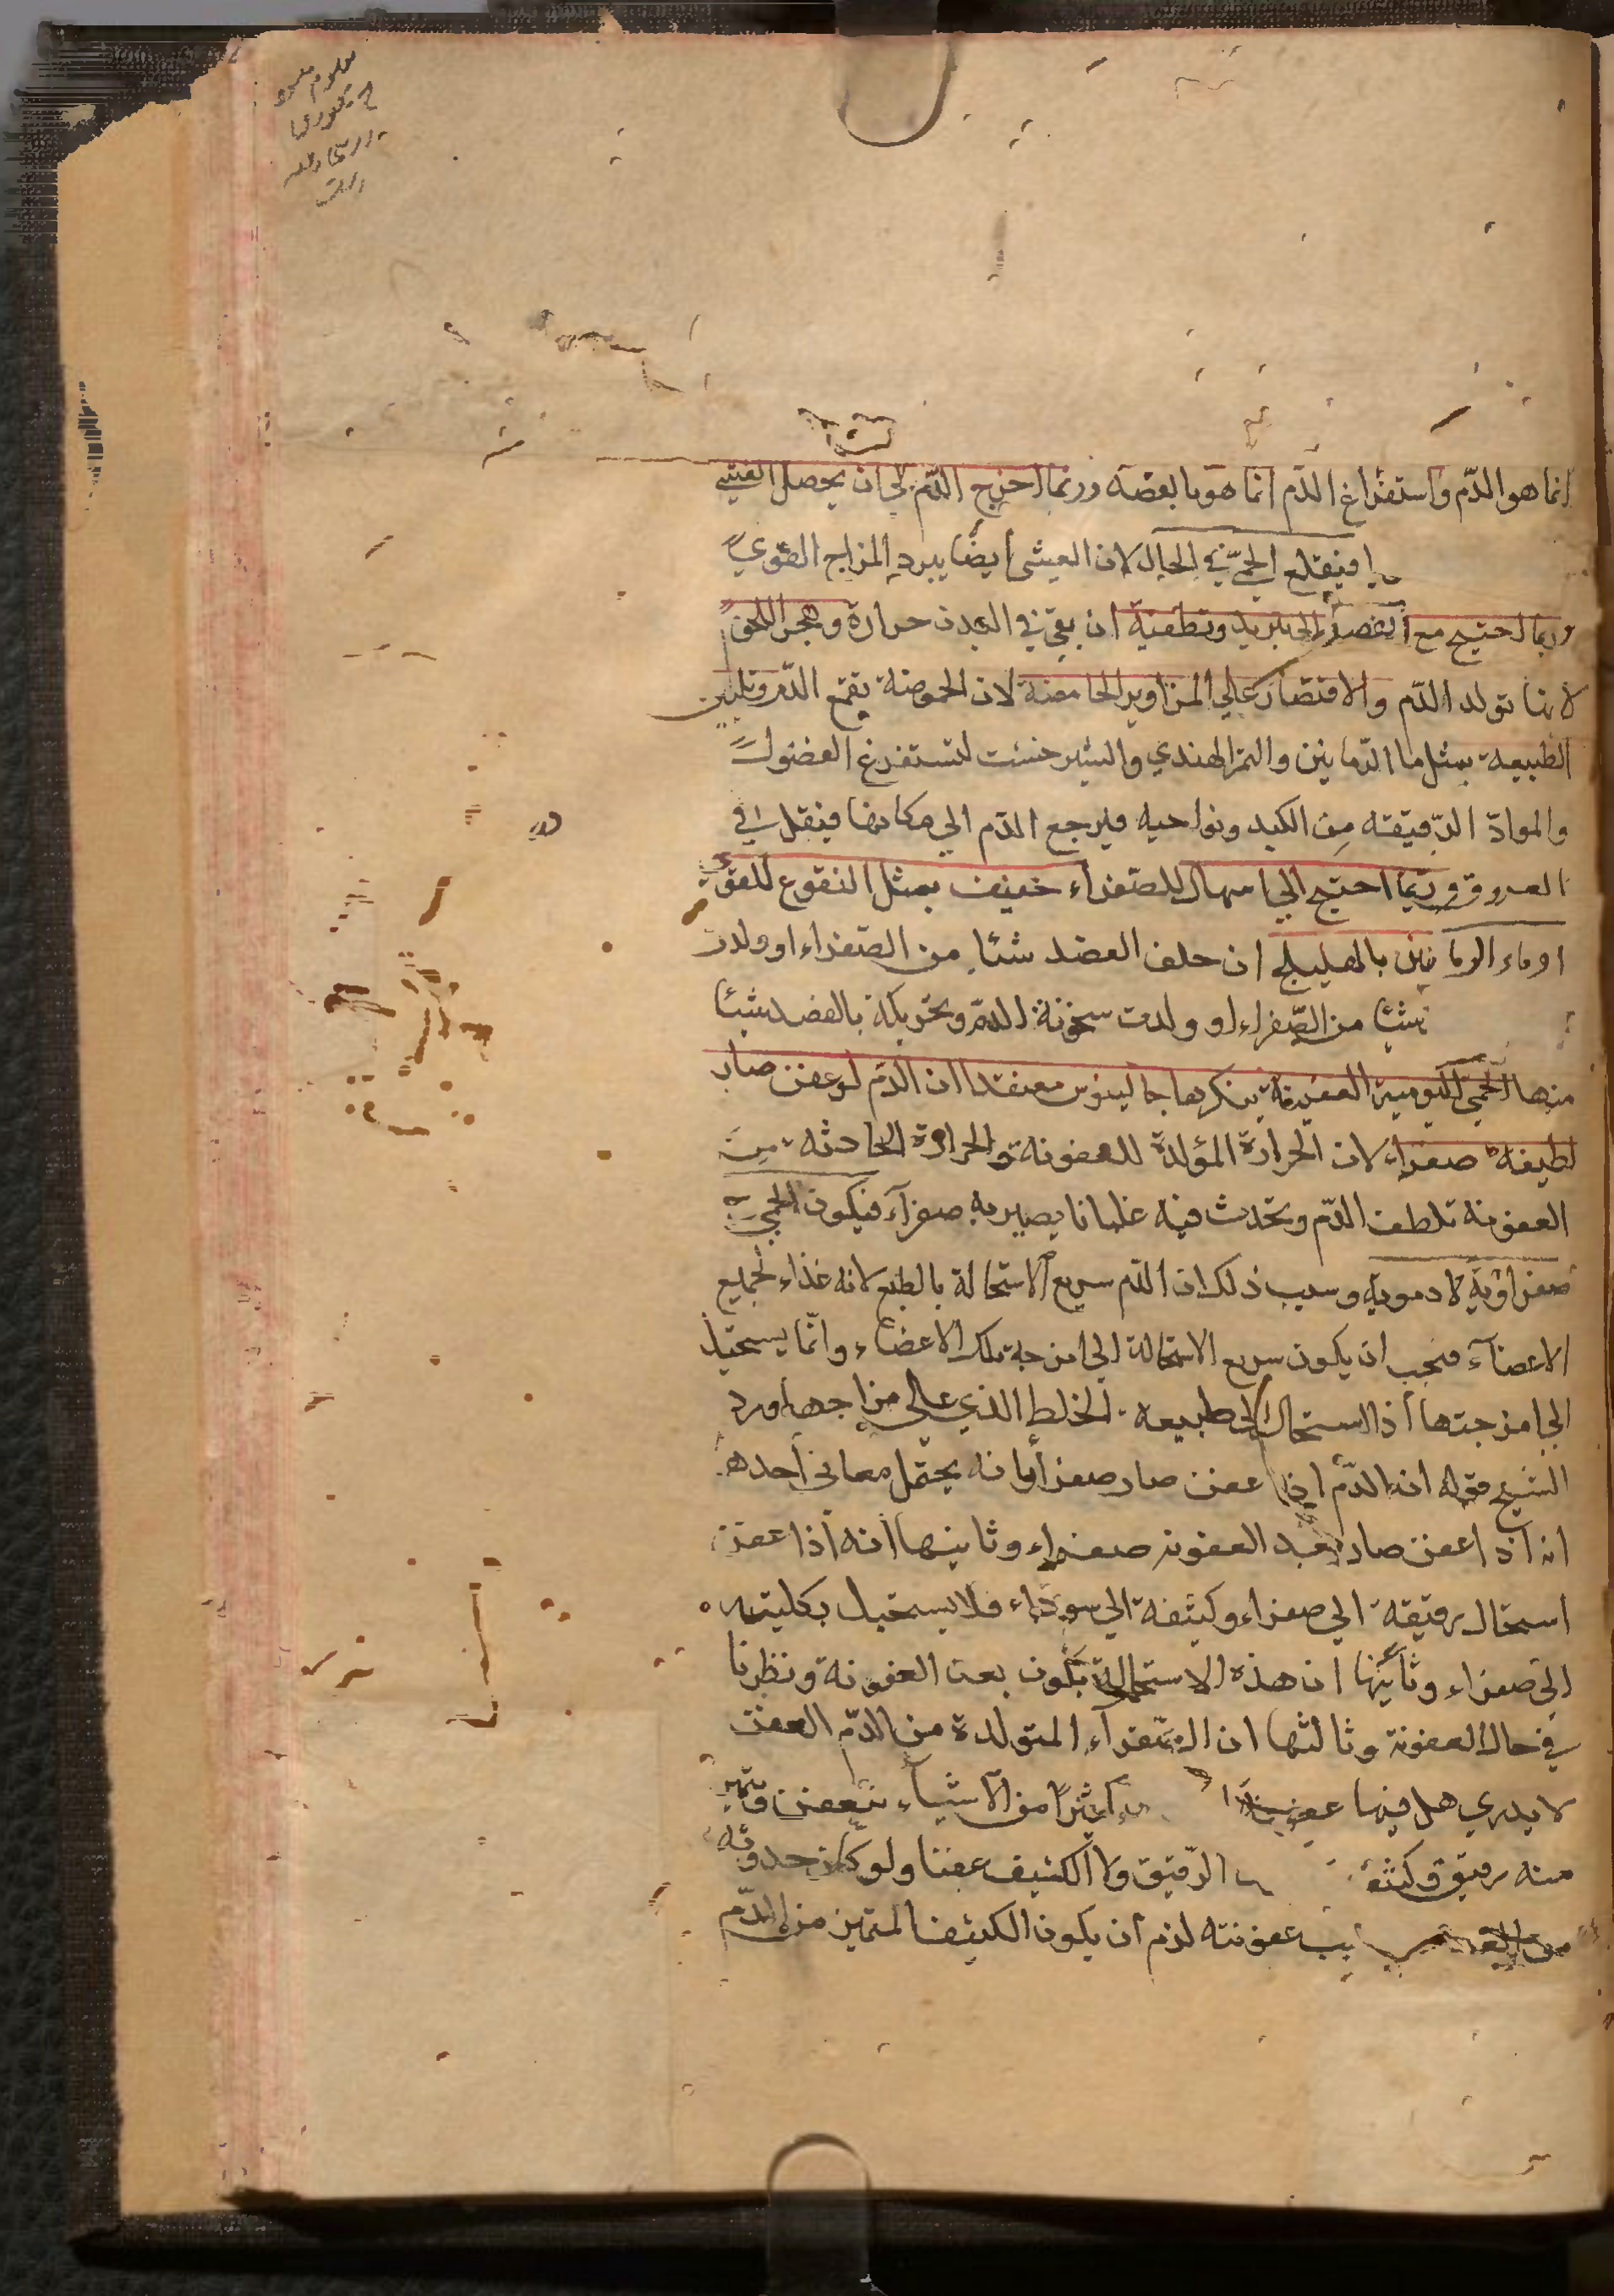 انما هو الدّم واستفراغ الدّم انما هو بالفصد وربما اخرج الدّم الى ان يحصل الغشى
فيقلع الحمّى في الحال لان الغشى ايضًا يبرد المزاج القوي
وربما احتيج مع الفصد الى تبريد وتطفية ان بقى في البدن حرارة وهجر اللحوم
لانها تولد الدّم والاقتصار على المزاوير الحامضة لان الحموضة تقمع الدّم وتليين
الطبيعة بمثل ما الرّمانين والتمر الهندي والشيرخشت لتستفرغ الفضول
والموادّ الرّقيقة من الكبد ونواحيه فيرجع الدّم الي مكانها فيقل في
العروق وربّما احتيج الي اسهال للصّفراء خفيف بمثل النقوع المقوّى
اوماء الرمانين بالهليلج ان خلف الفصد شئا من الصّفراء او ولدت
شئا من الصّفراء او ولدت سخونة الدّم وتحريكه بالفصد شيئا
منها الحمّى اليومية العفنة ينكرها جالينوس معتقدا ان الدّم لو عفن صار
لطيفه صفراء لان الحرارة المؤلدة للعفونة والحرارة الحادثه من
العفونة تلطف الدّم وتحدث فيه غليانا يصير به صفرآء فيكون الحمى
صفراوية لا دموية وسبب ذلك ان الدّم سريع الاستحالة بالطبع لانه غذاء لجميع
الاعضآء فيجب ان يكون سريع الاستحالة الى امزجة تلك الاعضاء وانّما يستحيل
الى امزجتها اذا استحال الى طبيعه الخلط الذي على مزاجها ورد
الشيخ قوله ان الدّم اذا عفن صار صفراء بانه يحتمل معانى احدها
انه اذا عفن صار بعد العفونة صفراء وثانيها انه اذا عفن
استحال رقيقه الي صفراء وكثيفه الي سوداء فلا يستحيل بكليته
الى صفراء وثانيها ان هذه الاستحالة تكون بعد العفونة ونظرنا
في حال العفونة وثالثها ان الصّفرآء المتولدة من الدّم العفن
لا يدري هل فيها عفونة كثيرًا من الاشياء يتعفن وتميز
منه رقيق وكثيف الرّقيق ولا الكثيف عفنا ولو كان حدوثه
عفونته لزم ان يكون الكثيف المتميز من الدّم